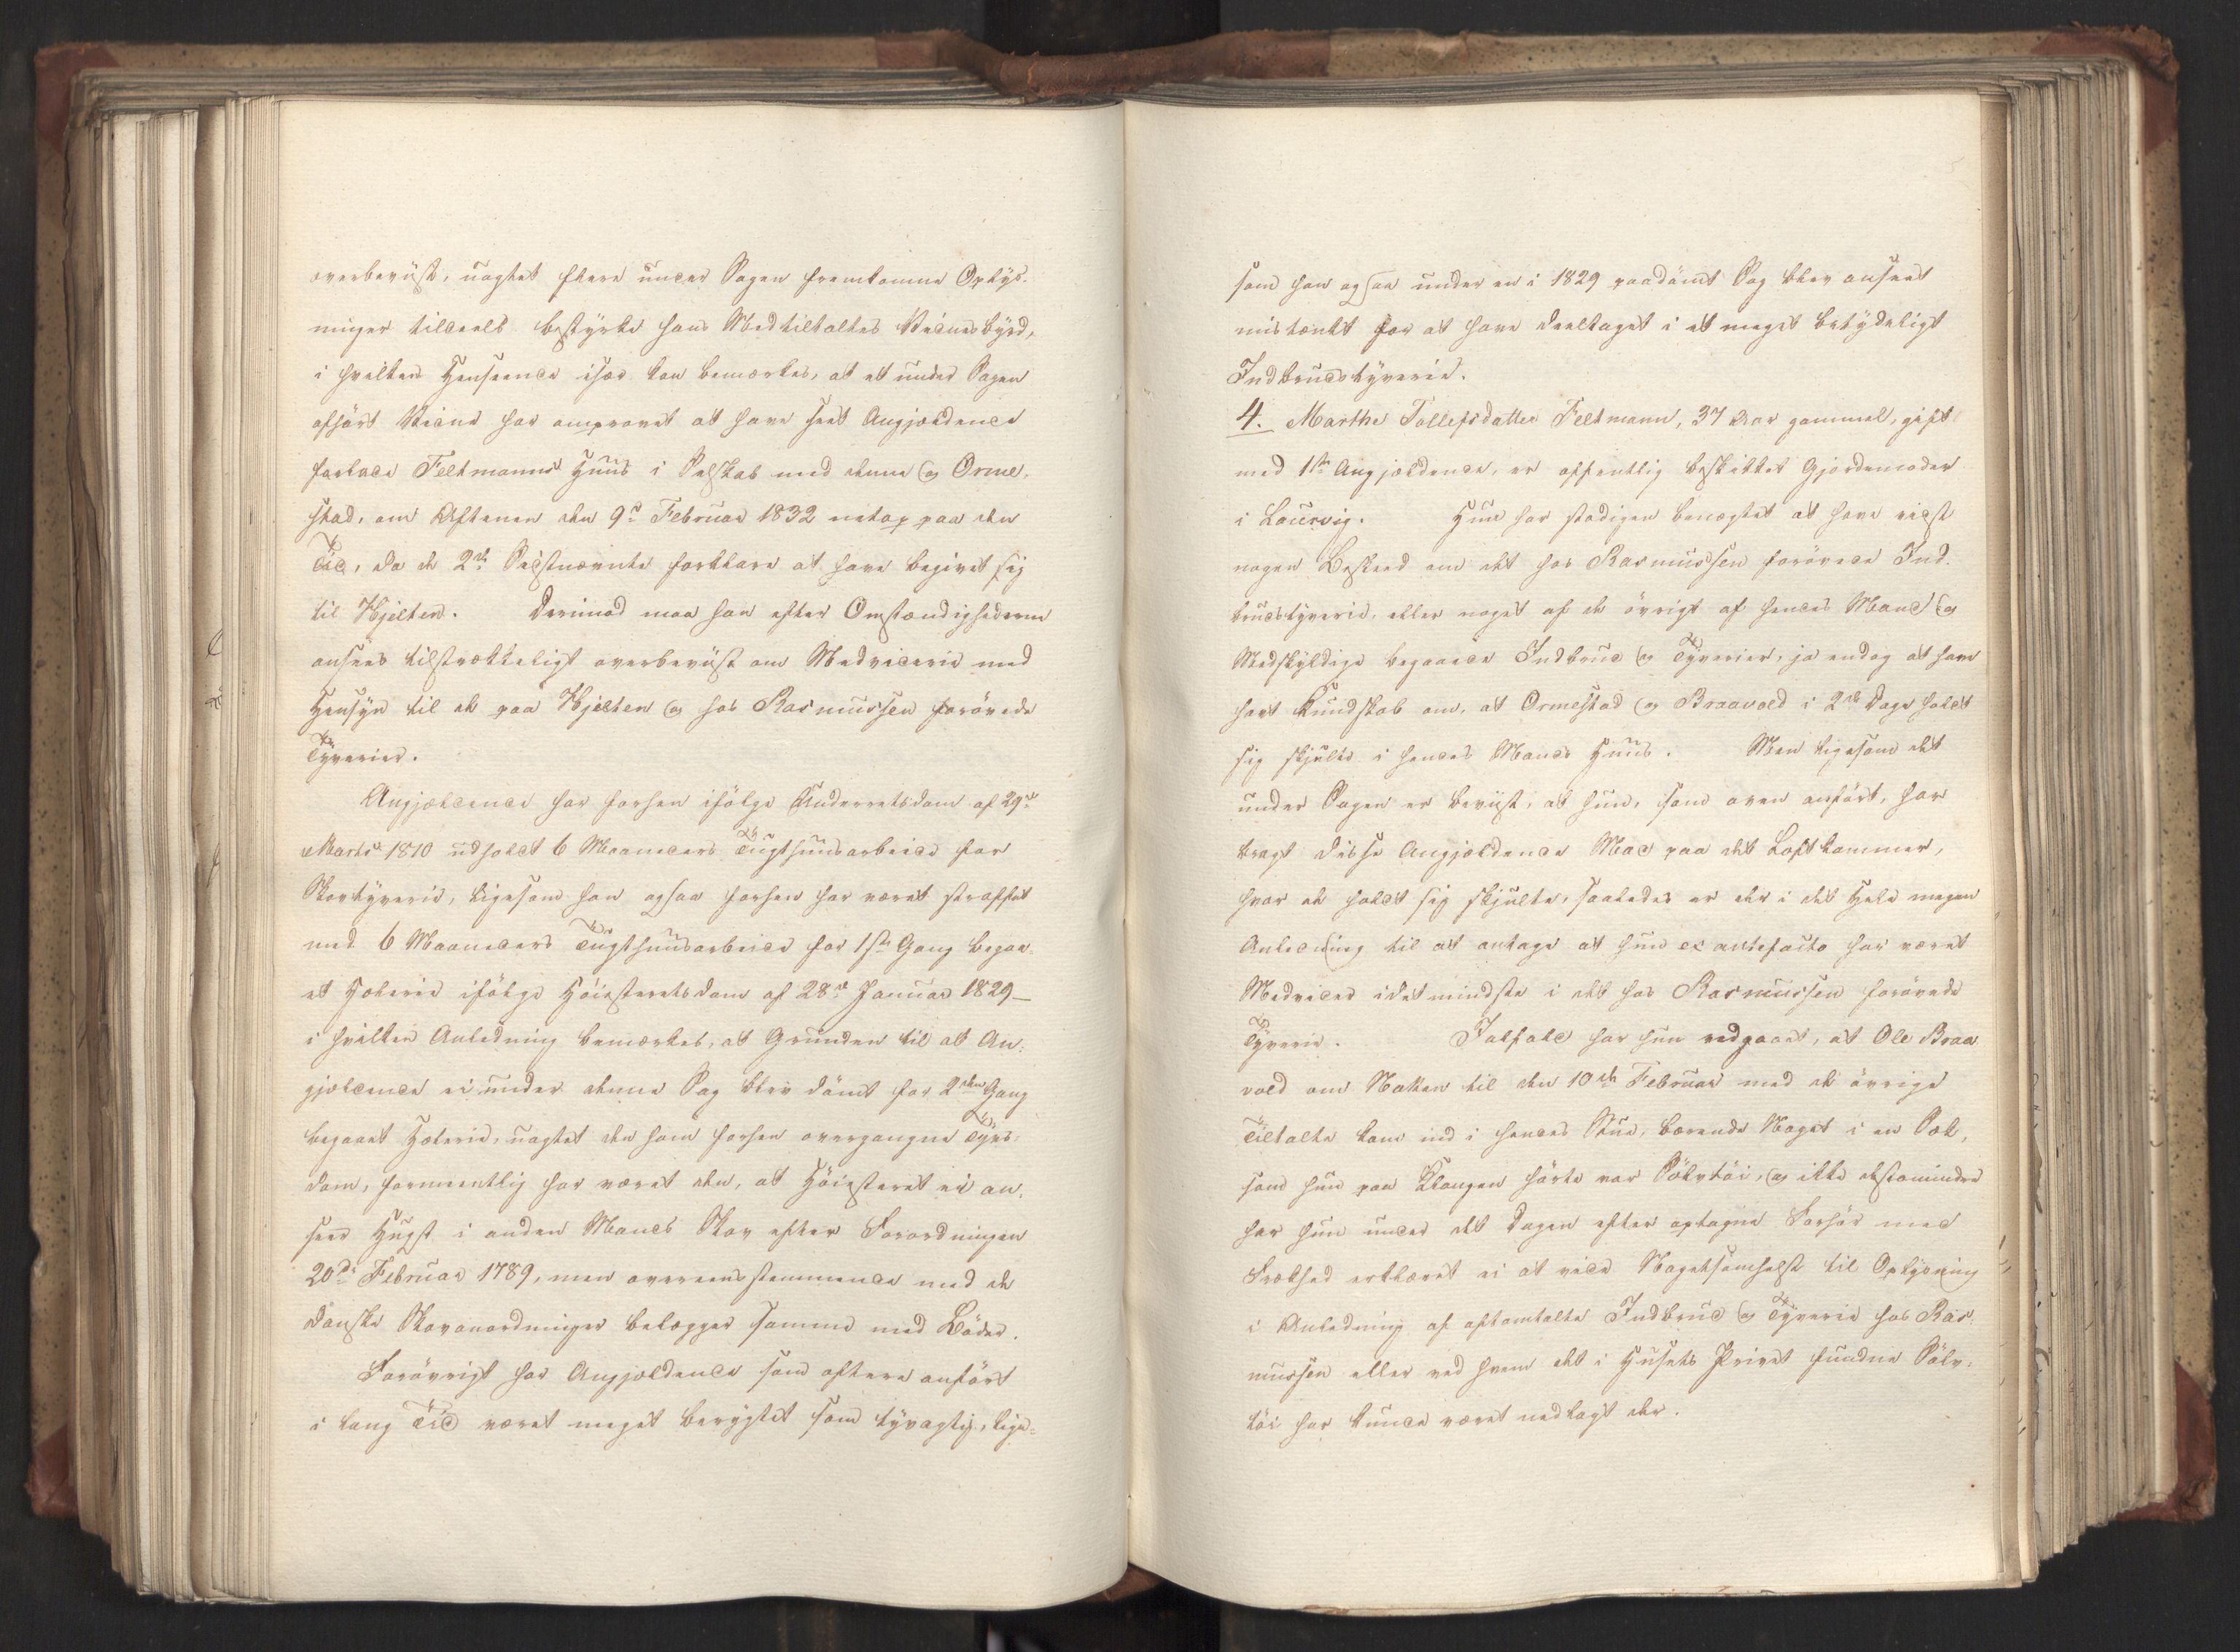 overbeviist, uagtet flere under Sagen fremkomne Oplys-
ninger tildeels bestyrke hans Medtiltaltes Vidnesbyrd,
i hvilken Henseende især kan bemærkes, at et under Sagen
afhørt Vidne har angivet at have seet Angjældende
forlade Feltmanns Huus i Selskab med denne og Orme-
stad, om Aftenen den 9de Februar 1832 netop paa den
Tid, da de 2de Sidstnævnte forklare at have begivet sig
til Kjelten. Derimod maa han efter Omstændighederne
ansees tilstrækkeligt overbeviist om Medviderie med
Hensyn til de paa Kjelten og hos Rasmussen forövede
Tyverier.
Angjældende har forhen ifölge Underretsdom af 29de
Marts 1810 udholdt 6 Maaneders Tugthuusarbeide for
Skovtyverie, ligesom han ogsaa forhen har været straffet
med 6 Maaneders Tugthuusarbeide for 1ste Gang begaa-
et Hæleri ifölge Höiesteretsdom af 28de Januar 1829 —
i hvilken Anledning bemærkes, at Grunden til at An-
gjældende ei under denne Sag blev dömt for 2den Gang
begaaet Hæleri, uagtet den ham forhen overgangne Tyvs-
dom, formeentlig har været den, at Höiesteret ei an-
seer Hugst i anden Mands Skov efter Forordningen
20de Februar 1789, men overeensstemmende med de
danske Skovanordninger belægger samme med Böder.
Forövrigt har Angjældende som oftere anfört
i lang Tid været meget berygtet som tyvagtig, lige-
som han ogsaa under en i 1829 paadömt Sag blev anseet
mistænkt for at have deeltaget i et meget betydeligt
Indbrudstyverie.
4. Marthe Tollefsdatter Feltmann, 37 Aar gammel, gift
med 1ste Angjældende, er offentlig beskikket Gjordemoder
i Laurvig. Hun har stadigen benægtet at have vidst
nogen Beskeed om det hos Rasmussen forövede Ind-
brudstyverie, eller noget af de övrige af hendes Mand og
Medskyldige begaaede Indbrud og Tyverier, ja endog at have
havt Kundskab om, at Ormestad og Braavold i 2de Dage holdt
sig skjulte i hendes Mands Huus. Men ligesom det
under Sagen er beviist, at hun, som oven anfört, har
bragt disse Angjældende Mad paa det Loftkammer,
hvor de holdt sig skjulte, saaledes er der i det Hele megen
Anledning til at antage at hun ex antefacto har været
Medvider idetmindste i det hos Rasmussen forövede
Tyverie. Ialfald har hun vedgaaet, at Ole Braa
vold om Natten til den 10de Februar med de övrige
Tiltalte kom ind i hendes Stue, bærende Noget i en Sæk,
som hun paa Klangen hörte var Sölvtöi, og ikke destomindre
har hun under det Dagen efter optagne Forhör med
Frækhed erklæret ei at vide Nogetsomhelst til Oplysning
i Anledning af oftomtalte Indbrud og Tyverie hos Ras-
mussen eller ved hvem det i Husets Privet fundne Sölv-
töi har kunde været nedlagt der.